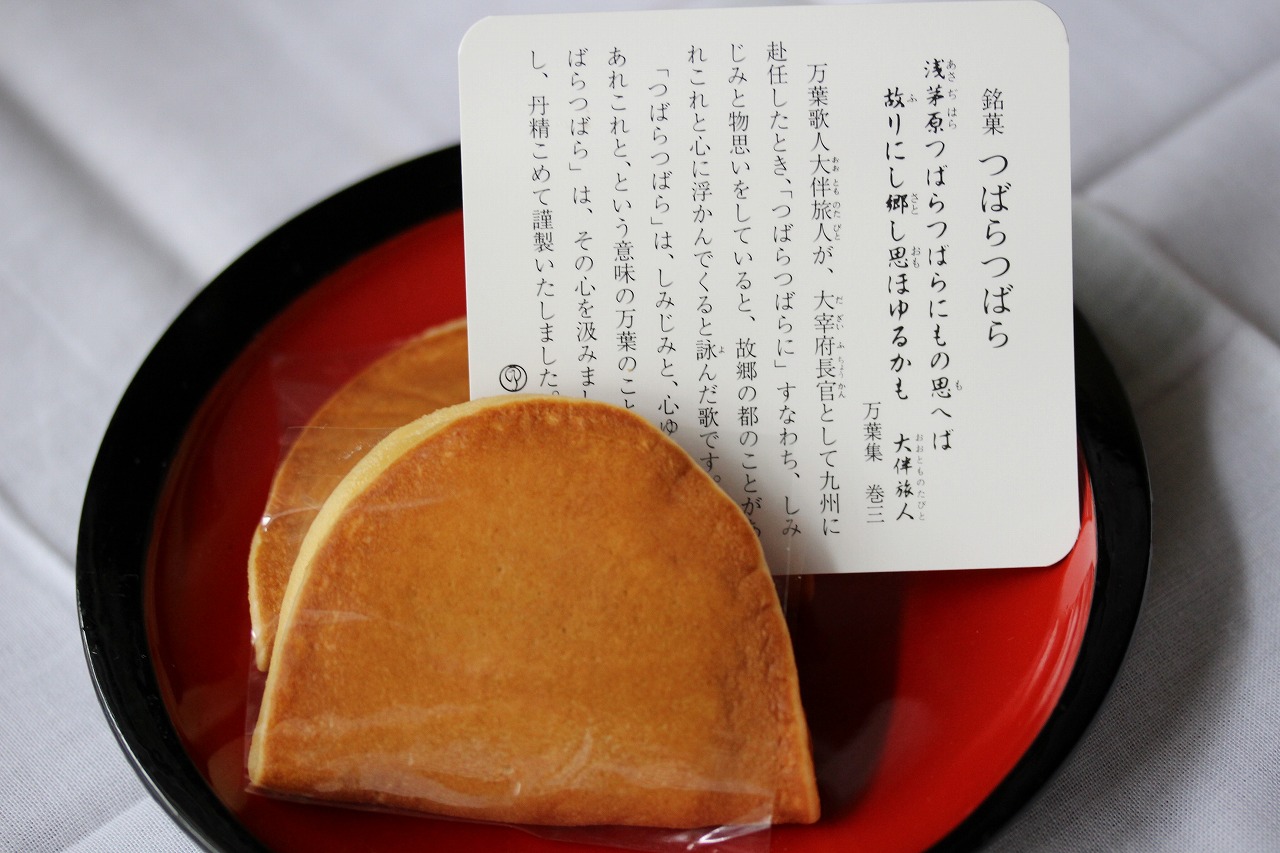 銘菓 つばらつばら
浅茅原つばらつばらにもの思へば
故りにし郷し思ほゆるかも 大伴旅人
万葉集 巻三
万葉歌人大伴旅人が、大宰府長官として九州に
赴任したとき、「つばらつばらに」すなわち、しみ
じみと物思いをしていると、故郷の都のことがあ
れこれと心に浮かんでくると詠んだ歌です。
「つばらつばら」は、しみじみと、心ゆ
あれこれと、という意味の万葉のこと
ばらつばら」は、その心を汲みまし
し、丹精こめて謹製いたしました。